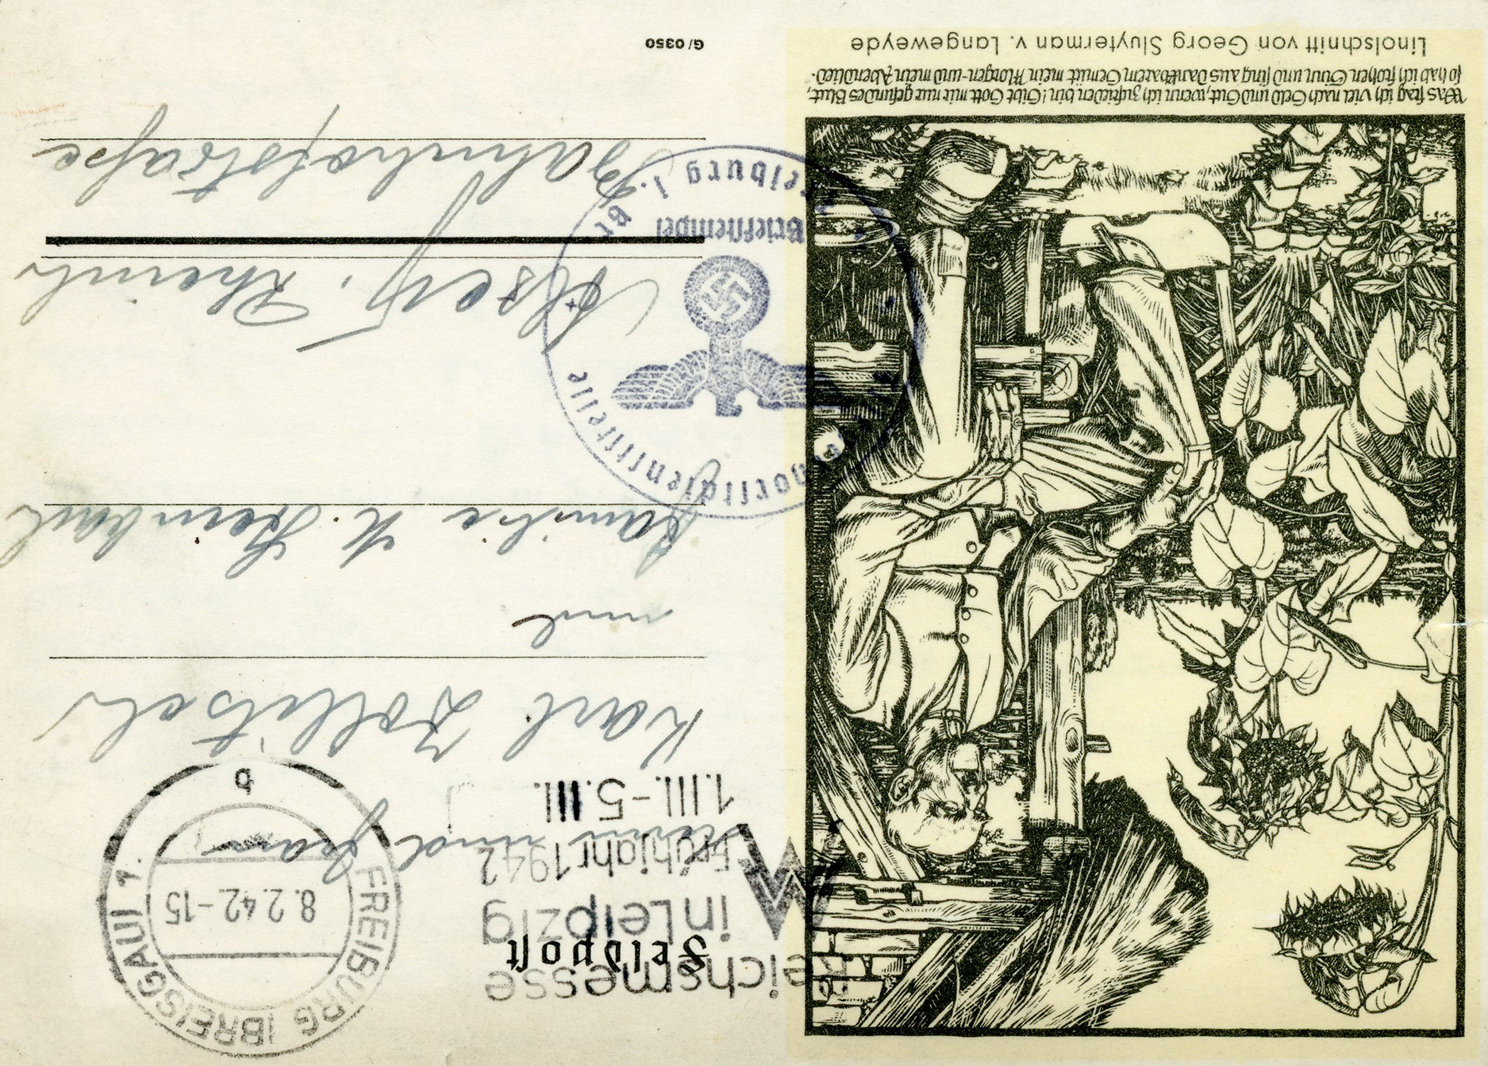 Feldpost
Reichsmesse
in Leipzig
Frühjahr 1942
1.III.-5.III.
FREIBURG (BREISGAU) 1
8.2.42-15
b
Herrn und Frau
Karl
und
Familie K.
Bahnhofstrasse
Briefstempel
Freiburg i. B
G/0350
Was frag ich viel nach Geld und Gut, wenn ich zufrieden bin! Gibt Gott mir nur gesundes Blut,
so hab ich frohen Sinn und sing aus dankbarem Gemüt mein Morgen- und mein Abendlied.
Linolschnitt von Georg Sluyterman v. Langeweyde